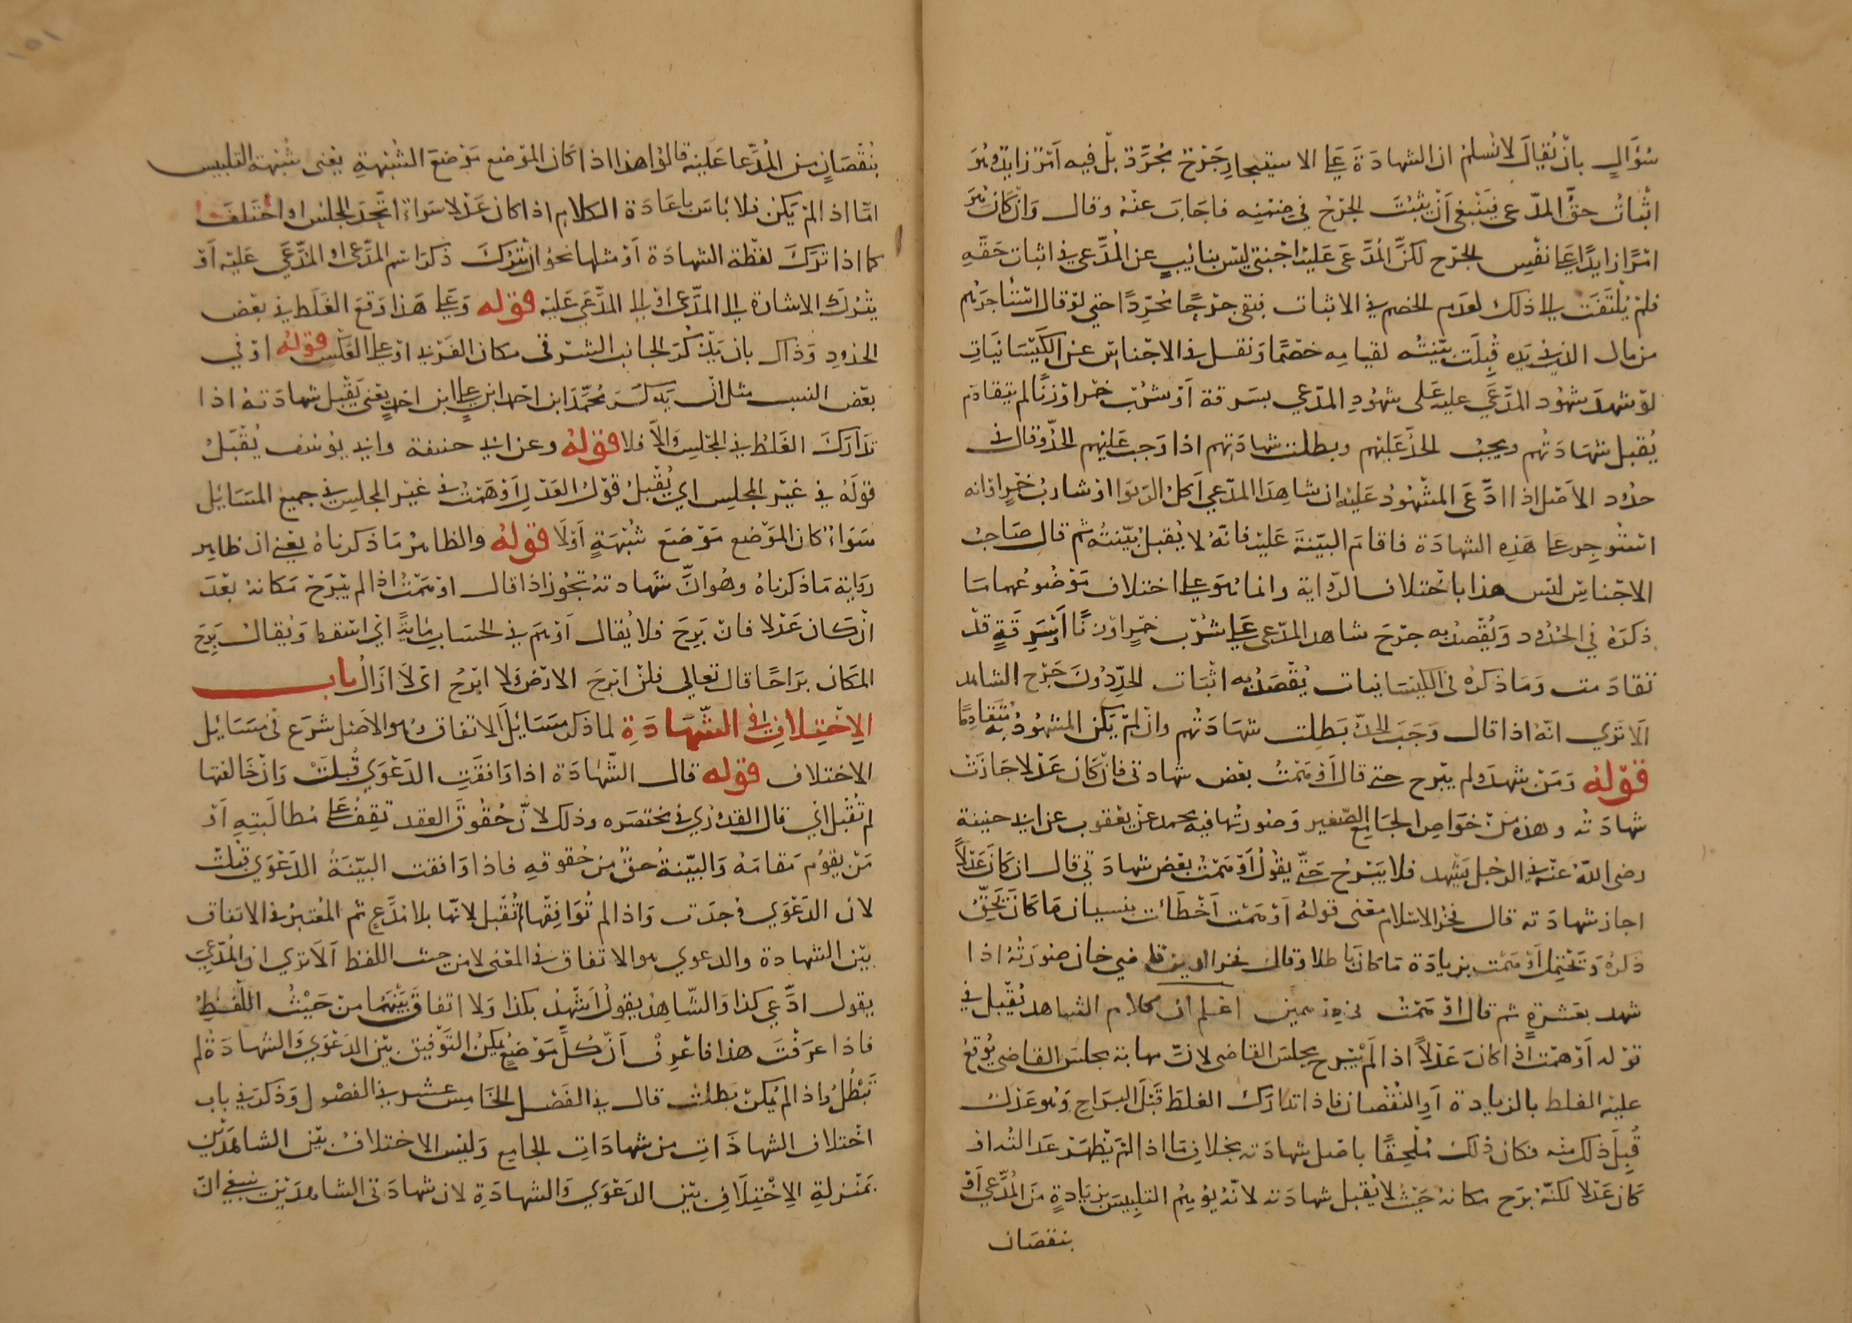 سؤال بان يقال لا نسلم ان الشهادة على الاستيجار جرح مجرد بل فيه امر زايد وهو
اثبات حق المدعي فينبغي ان يثبت الجرح في ضمنه فاجاب عنه وقال وان كان هو
امرا زايدا على نفس الجرح لكن المدعى عليه اجنبي ليس بنائب عن المدعي في اثبات حقه
فلم يلتفت الى ذلك لعدم الخصم في الاثبات فبقي جرحا مجردا حتى لو قال استاجرهم
من مال الذي في يده قبلت بينته لقيامه خصما ونقل في الاجناس عن الكيسانيات
لو شهد شهود المدعى عليه على شهود المدعي بسرقة او شرب خمر او زنا لم يتقادم
يقبل شهادتهم ويجب الحد عليهم وبطلت شهادتهم اذا وجب عليهم الحد وقال في
حدود الاصل اذا ادعى المشهود عليه ان شاهد المدعي آكل الربوا او شارب خمر او انه
استوجر على هذه الشهادة فاقام البينة عليه فانه لا يقبل بينته ثم قال صاحب
الاجناس ليس هذا باختلاف الرواية وانما هو على اختلاف موضوعهما ما
ذكره في الحدود ويقصد به جرح شاهد المدعي على شرب خمر او زنا او سرقة قد
تقادمت وما ذكره في الكيسانيات يقصد به اثبات الحد دون جرح الشاهد
الا ترى انه اذا قال وجب الحد بطلت شهادتهم وان لم يكن المشهود به متقادما
قوله ومن شهد ولم يبرح حتى قال اوهمت بعض شهادتي فان كان عدلا جازت
شهادته وهذه من خواص الجامع الصغير وصورتها فيه محمد عن يعقوب عن ابي حنيفة
رضي الله عنه في الرجل يشهد فلا يبرح حتى يقول اوهمت بعض شهادتي قال ان كان عدلا
اجاز شهادته قال فخر الاسلام معنى قوله اوهمت اخطات بنسيان ما كان يحق
ذكره ويحتمل اوهمت بزيادة ما كان باطلا وقال فخر الدين قاضي خان صورته اذا
شهد بعشرة ثم قال اوهمت اعلم ان كلام الشاهد يقبل في
قوله اوهمت اذا كان عدلا اذا لم يبرح مجلس القاضي لان مهابة مجلس القاضي يوقع
عليه الغلط بالزيادة او النقصان فاذا تدارك الغلط قبل البراح وهو عدل
قبل ذلك منه فكان ذلك ملحقا باصل شهادته بخلاف ما اذا لم يظهر عدالته او
كان عدلا لكنه برح مكانه حيث لا يقبل شهادته لانه يوهم التلبيس بزيادة من المدعي او
بنقصان
بنقصان من المدعا عليه قالوا هذا اذا كان الموضع موضع الشبهة يعني شبهة التلبيس
اما اذا لم يكن فلا باس باعادة الكلام اذا كان عدلا سواء اتحد المجلس او اختلف
كما اذا ترك لفظة الشهادة او مثلها نحو ان يترك ذكر اسم المدعي او المدعى عليه او
يترك الاشارة الى المدعي او الى المدعى عليه قوله وعلى هذا وقع الغلط في بعض
الحدود وذاك بان يذكر الجانب الشرقي مكان الغربي او على العكس قوله او في
بعض النسب مثل ان يذكر محمد ابن احمد ابن علي ابن احمد يعني يقبل شهادته اذا
تدارك الغلط في المجلس والا فلا قوله وعن ابي حنيفة وابي يوسف يقبل
قوله في غير المجلس اي يقبل قول العدل اوهمت في غير المجلس في جميع المسايل
سواء كان الموضع موضع شبهة اولا قوله والظاهر ما ذكرناه يعني ان ظاهر
رواية ما ذكرناه وهو ان شهادته تجوز اذا قال اوهمت اذا لم يبرح مكانه بعد
ان كان عدلا فان برح فلا يقال اوهم في الحساب مائة اي اسقط ويقال برح
المكان براحا قال تعالى فلن ابرح الارض ولا ابرح اي لا ازال باب
الاختلاف في الشهادة لما ذكر مسايل الاتفاق وهو الاصل شرع في مسايل
الاختلاف قوله قال الشهادة اذا وافقت الدعوى قبلت وان خالفتها
لم تقبل اي قال القدوري في مختصره وذلك لان حقوق العقد تقف على مطالبته او
من يقوم مقامه والبينة حق من حقوقه فاذا وافقت البينة الدعوى قبلت
لان الدعوى وجدت واذا لم توافقها لم تقبل لانها بلا مدع ثم المعتبر في الاتفاق
بين الشهادة والدعوى هو الاتفاق في المعنى لا من حيث اللفظ الا ترى ان المدعي
يقول ادعي كذا والشاهد يقول اشهد بكذا ولا اتفاق بينهما من حيث اللفظ
فاذا عرفت هذا فاعرف ان كل موضع يمكن التوفيق بين الدعوى والشهادة لم
تبطل واذا لم يكن بطلت قال في الفصل الخامس عشر في الفصول وذكر في باب
اختلاف الشهادات من شهادات الجامع وليس الاختلاف بين الشاهدين
بمنزلة الاختلاف بين الدعوى والشهادة لان شهادتي الشاهدين ينبغي ان